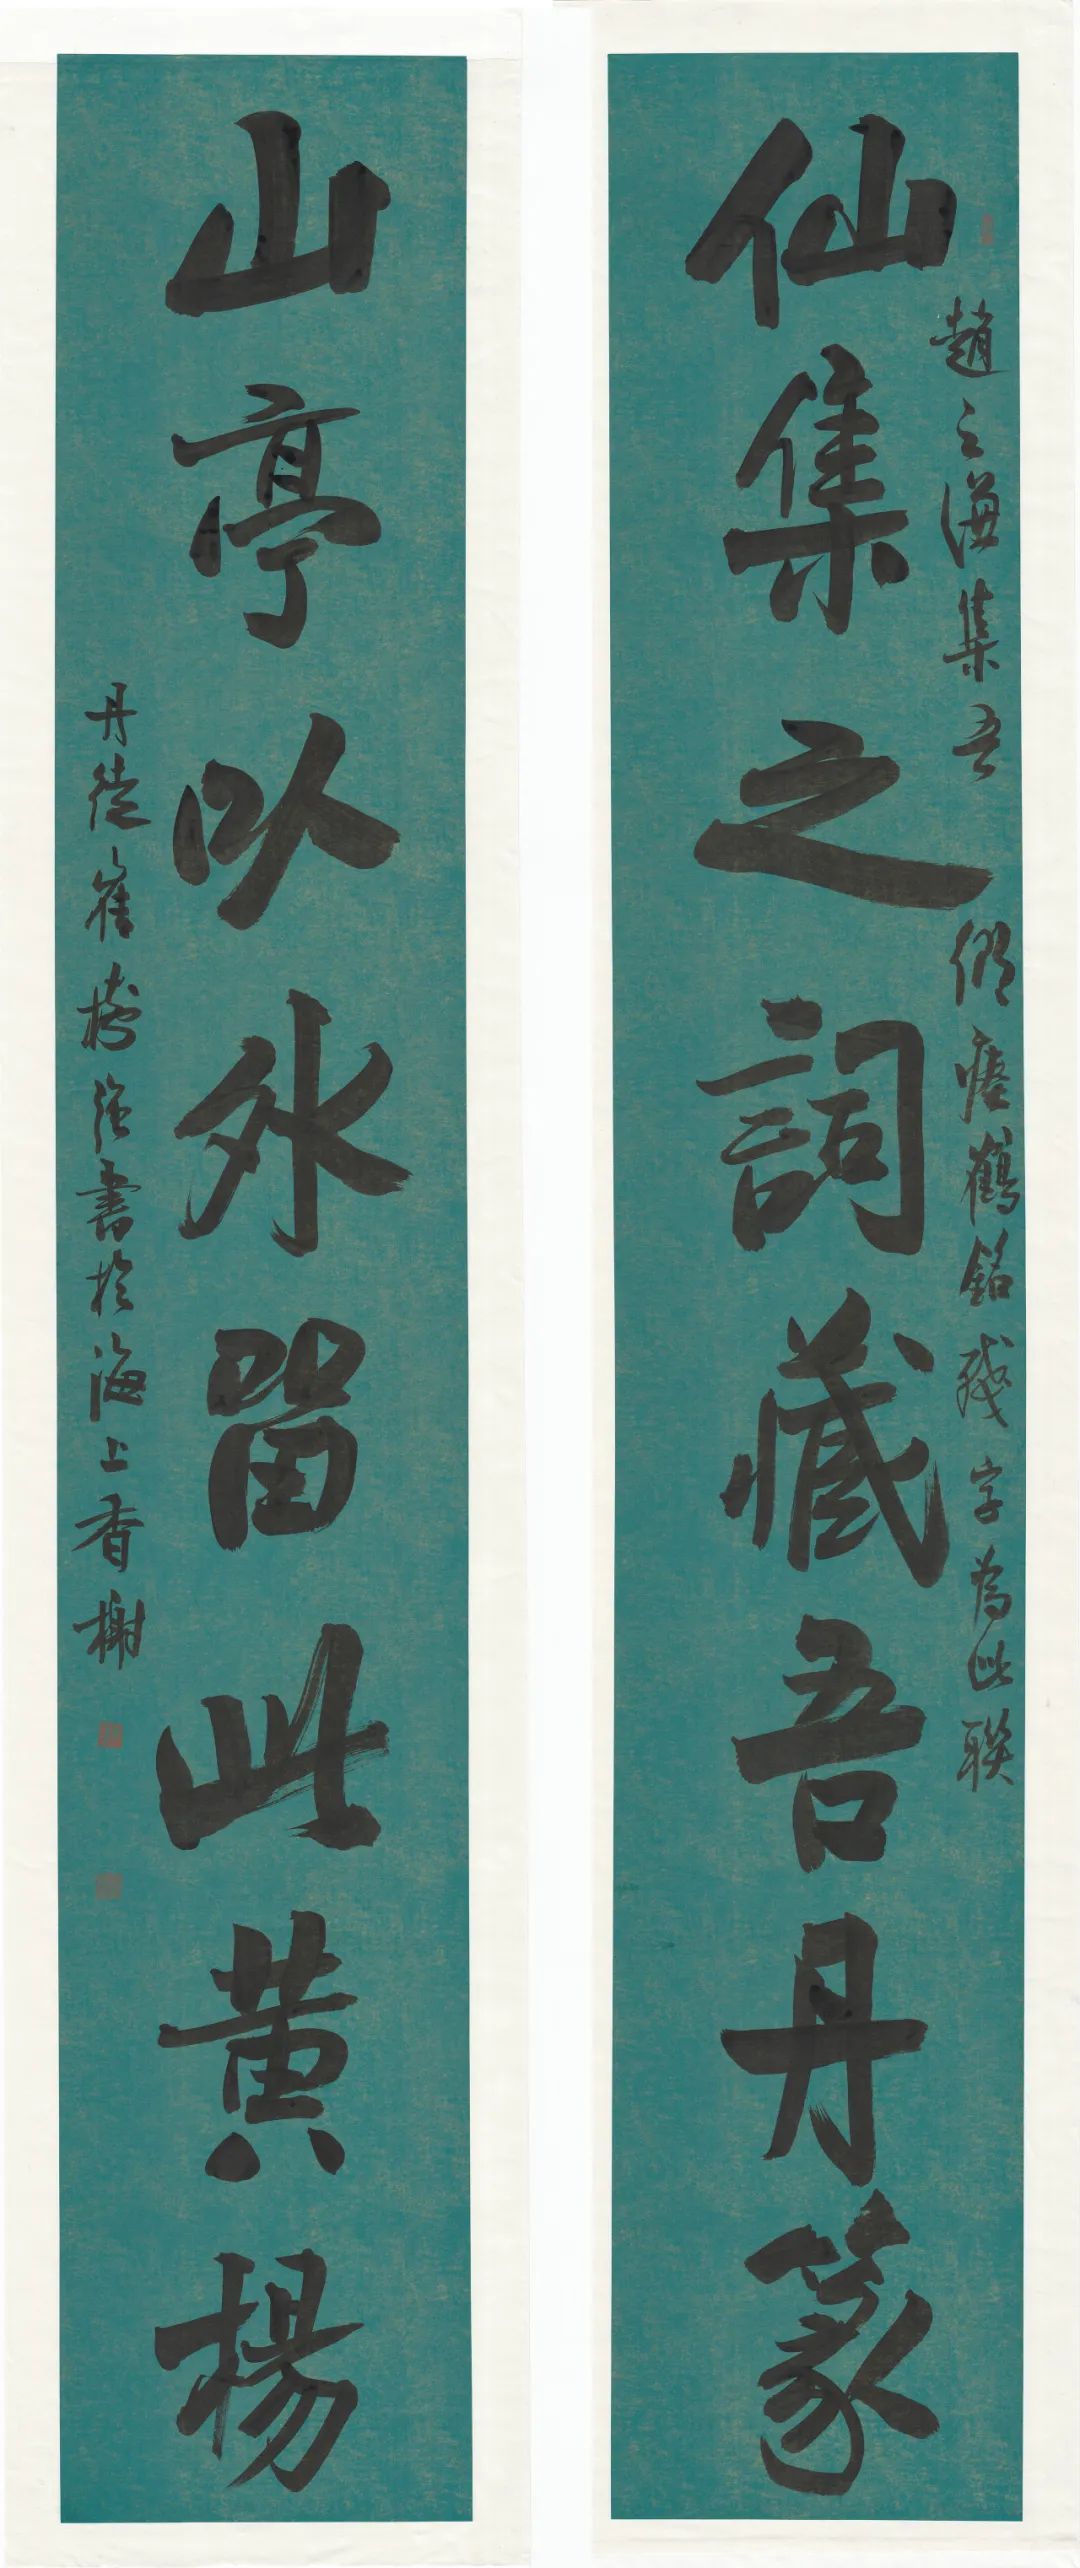 仙集之詞藏吾丹篆
趙之謙集瘞鶴銘殘字為此聯
山亭以外留此黃楊
丹徒崔樹強書於海上香榭